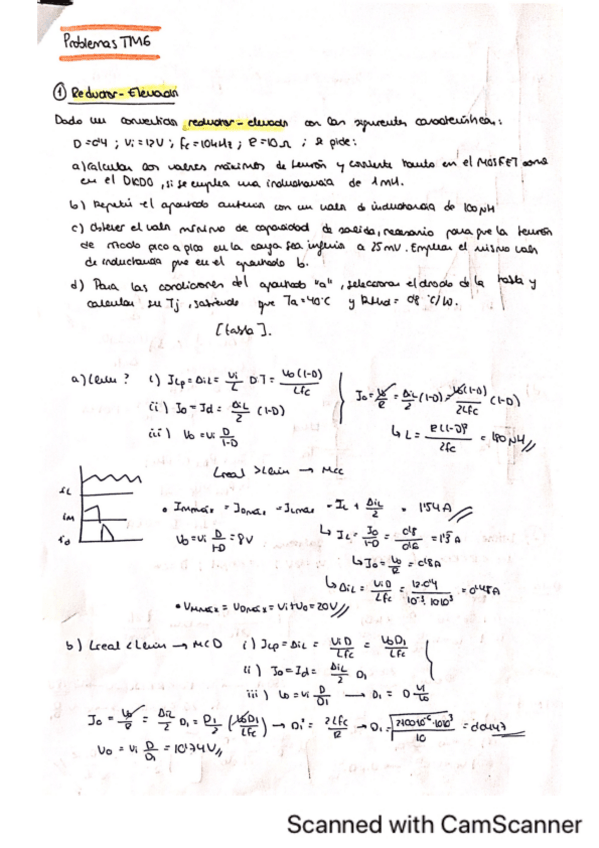 Problemas TM6
① Reductor-Elevador
Dado un convertidor reductor-elevador con las siguientes características:
D=0'4 ; Vi=12V ; fc=10kHz ; R=10Ω ; se pide:
a) Calcular los valores máximos de tensión y corriente tanto en el MOSFET como
en el DIODO, si se emplea una inductancia de 1mH.
b) Repetir el apartado anterior con un valor de inductancia de 100μH
c) Obtener el valor mínimo de capacidad de salida, necesario para que la tensión
de rizado pico a pico en la carga sea inferior a 25mV. Emplear el mismo valor
de inductancia que en el apartado b.
d) Para las condiciones del apartado "a", seleccionar el diodo de la tabla y
calcular su Tj, sabiendo que Ta=40°C y = 0'8 °C/W.
[tabla].
a) Lmin? i) ILp = ΔiL = Vi/L D·T = Vo(1-D)/Lfc
ii) Io = Id = ΔiL/2 (1-D)
iii) Vo = Vi D/1-D
Io = Vo/R = ΔiL/2 (1-D) = Vo(1-D)/2Lfc (1-D)
↳ L = R(1-D)²/2fc = 180μH
Lreal > Lmin → MCC
iL
iM
id
• IMmax = IDmax = ILmax = IL + ΔiL/2 = 1'54A
Vo = Vi D/1-D = 8V
↳ IL = Io/1-D = 0'8/0'6 = 1'3A
↳ Io = Vo/R = 0'8A
↳ ΔiL = ViD/Lfc = 12·0'4/10⁻³·10·10³ = 0'48A
• VMmax = VDmax = Vi+Vo = 20V
b) Lreal < Lmin → MCD i) ILp = ΔiL = ViD/Lfc = VoD₁/Lfc
ii) Io = Id = ΔiL/2 D₁
iii) Vo = Vi D/D₁ → D₁ = D Vi/Vo
Io = Vo/R = ΔiL/2 D₁ = D₁/2 (VoD₁/Lfc) → D₁² = 2Lfc/R → D₁ = √2·100·10⁻⁶·10·10³/10 = 0'447
Vo = Vi D/D₁ = 10'74V
Scanned with CamScanner